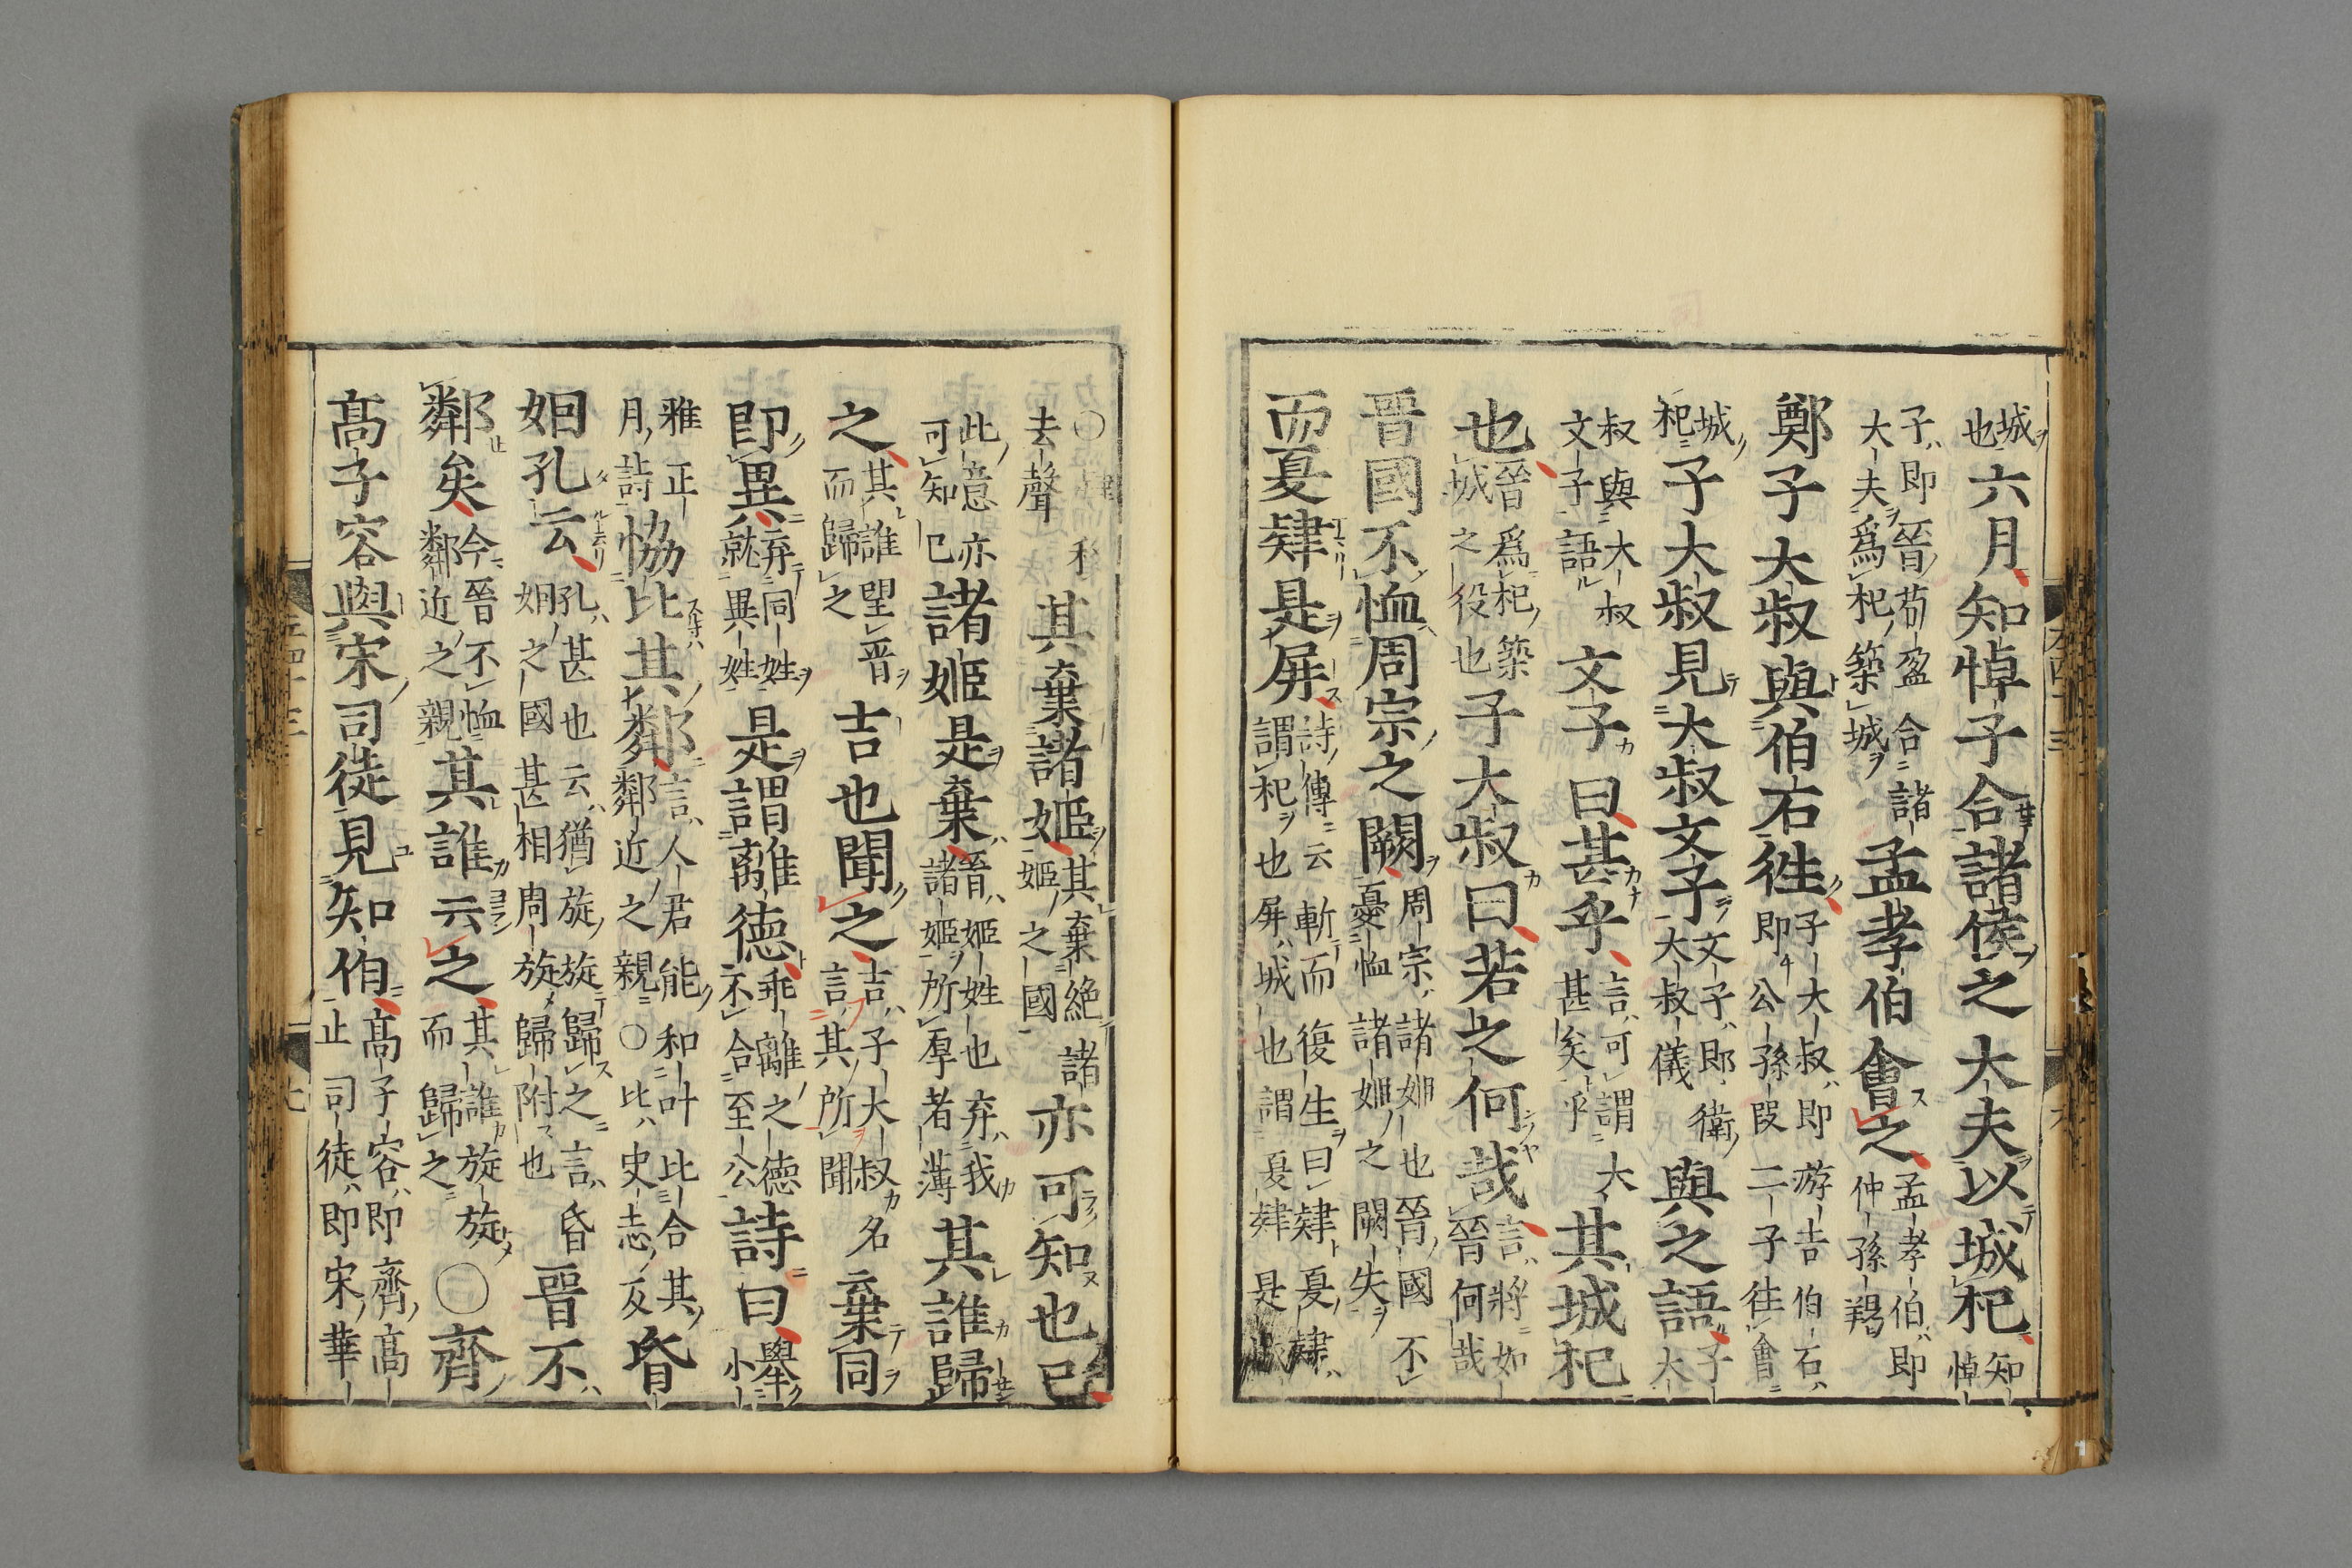 城也六月知悼子合諸侯之大夫以城杞知悼
子即晉荀盈合諸大夫爲杞築城孟孝伯會之孟孝伯即仲孫羯
鄭子大叔與伯石徃子大叔即游吉伯石即公孫段二子徃會
城杞子大叔見大叔文子文子即衛大叔儀與之語子大
叔與大叔文子語文子曰甚乎言可謂大甚矣乎其城杞
也晉爲杞築城之役也子大叔曰若之何哉言將如晉何哉
晉國不恤周宗之闕周宗諸姬也晉國不憂恤諸姬之闕失
而夏肄是屏詩傳云斬而復生曰肄夏肄謂杞也屏城也謂夏肄是
○去聲其棄諸姬其棄絕諸姬之國亦可知也已
此意亦可知已諸姬是棄晉姬姓也弃我諸姬所厚者薄其誰歸
之其誰望晉而歸之吉也聞之吉子大叔名言其所聞棄同
即異弃同姓就異姓是謂離德乖離之德不合至公詩曰舉小
雅正月詩協比其鄰言人君能和叶比合其鄰近之親○比史志反昏
姻孔云孔甚也云猶旋旋歸之言昏姻之國甚相周旋歸附也晉不
鄰矣今晉不恤鄰近之親其誰云之其誰旋旋而歸之○齊
高子容與宋司徒見知伯高子容即齊高止司徒即宋華